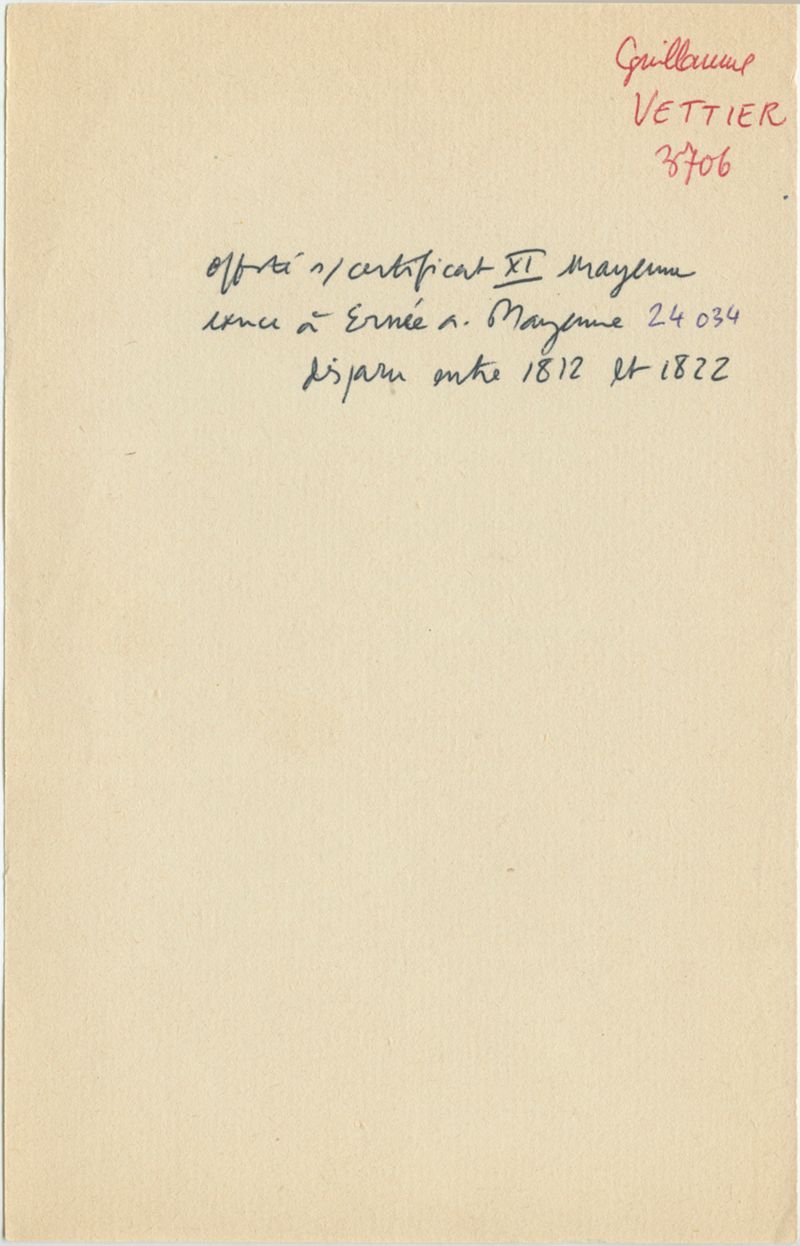 Guillaume
VETTIER
3706
s/certificat XI Mayenne
exerce à Ernée a. Mayenne 24 034
disparu entre 1812 et 1822